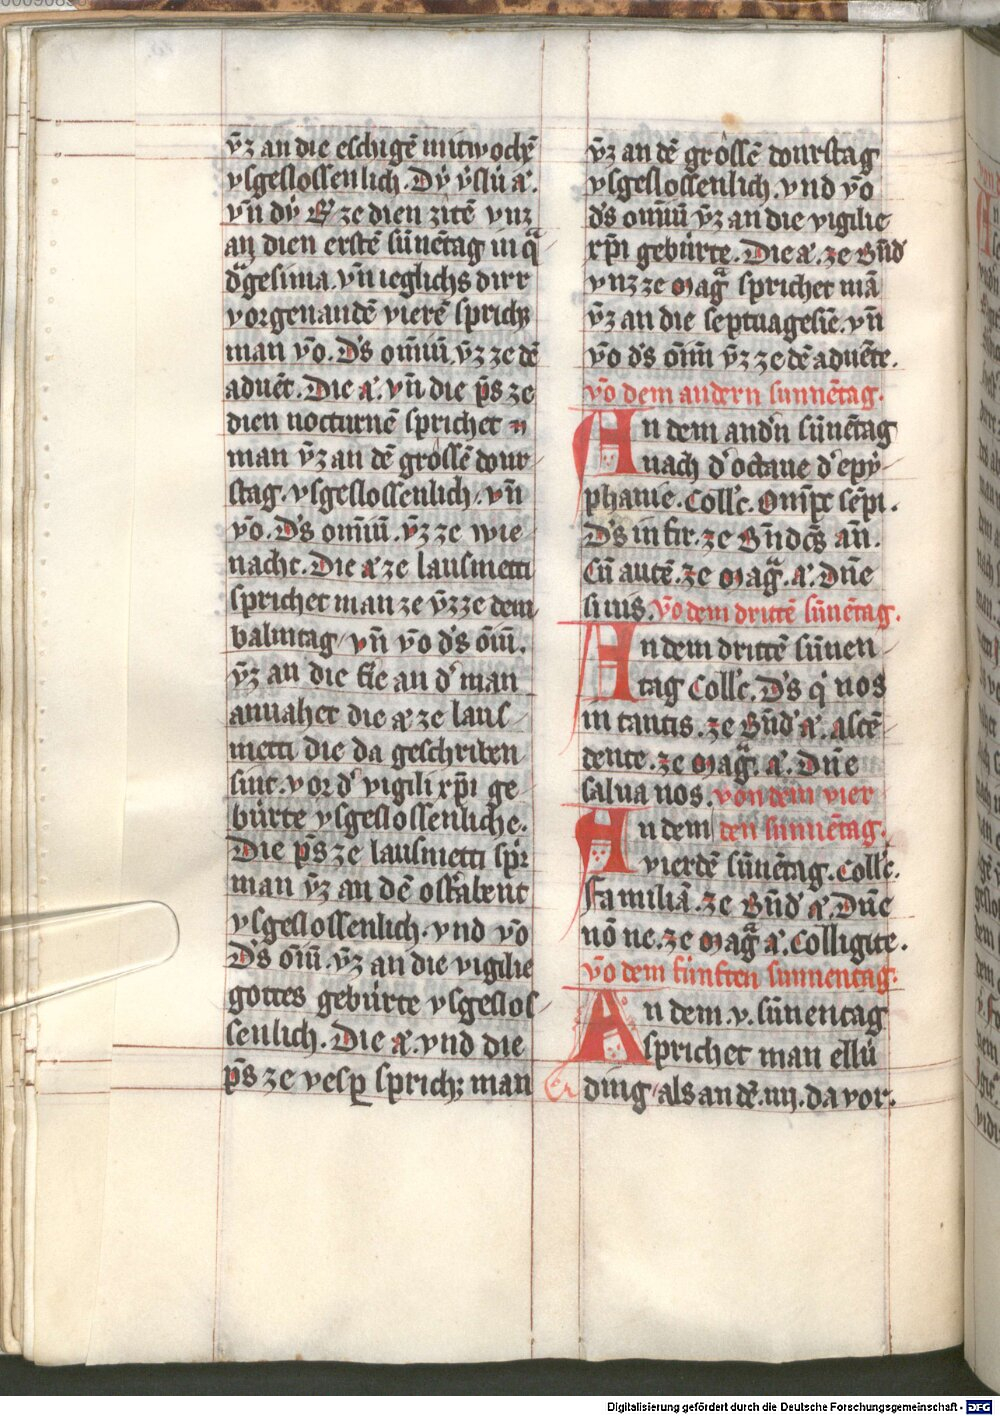 v̄z an die eschigē mitwochē
vsgeslossenlich. Dÿ ÿslū a᷎.
vn̄ dÿ R᷎ ze dien zitē vnz
an dien erstē sūnētag in qᷓ
dᷓgesima. vn̄ ieglichs dirr
vorgenandē vierē sprichꝫ
man vō. Ds̄ om̄iū. v̄z ze dē
aduēt. Die a᷎. vn̄ die ps̄ ze
dien nocturnē sprichet
man v̄z an dē grössē dour
stag. vsgeslossenlich. vn̄
vō. Ds̄ om̄iū. v̄z ze wie
nacht. Die a᷎ ze lausmetti
sprichet man ze v̄z ze dem
balmtag / vn̄ vō ds̄ om̄iū.
v̄z an die zīt an d᷎ man
anuahet die a᷎ ze laus
metti die da geschriben
sint. vor d᷎ vigili xp̄i ge
bürte vsgeslossenliche.
Die ps̄ ze lausmetti spr̄
man v̄z an dē ostᷓabent
vsgeslossenlich. vnd vō
Ds̄ om̄iū. v̄z an die vigilie
gottes gebürte vsgeslos
senlich. Die a᷎. vnd die
ps̄ ze vesꝑ sprichꝫ man
v̄z an dē grössē dourstag
vsgeslossenlich. vnd vō
ds̄ om̄iū v̄z an die vigilie
xp̄i gebürte. Die a᷎. ze Bn̄d᷎
vnz ze Magᷓ sprichet mā
v̄z an die septuagesiē. vn̄
vō ds̄ om̄iū v̄z ze dē aduēte.
vō dem andern sunnētag.
An dem and᷎n sūnētag
nach d᷎ octaue d᷎ epÿ
phanie. Coll᷎c. Om̄ps sēpi.
Ds̄ in fir. ze Bn̄dcs̄ an̄.
Cū autē. ze Magᷓ. a᷎. Dn̄e
si uis. vō dem drittē sūnētag.
An dem drittē sūnen
tag Coll᷎c. Ds̄ qͥ nos
in tantis. ze Bn̄d᷎ a᷎. ascē
dente. ze Magᷓ. a᷎. Dn̄e
salua nos. von dem vier
An dem den sunnētag.
vierdē sūnētag. Coll᷎c.
Familiā. ze Bn̄d᷎ a᷎. Dn̄e
nōne. ze Magᷓ a᷎. Colligite.
vō dem fünften sunnentag.
An dem. v. sūnentag
sprichet man ellü
ding / als an dē. iiij. da vor.
Digitalisierung gefördert durch die Deutsche Forschungsgemeinschaft - DFG